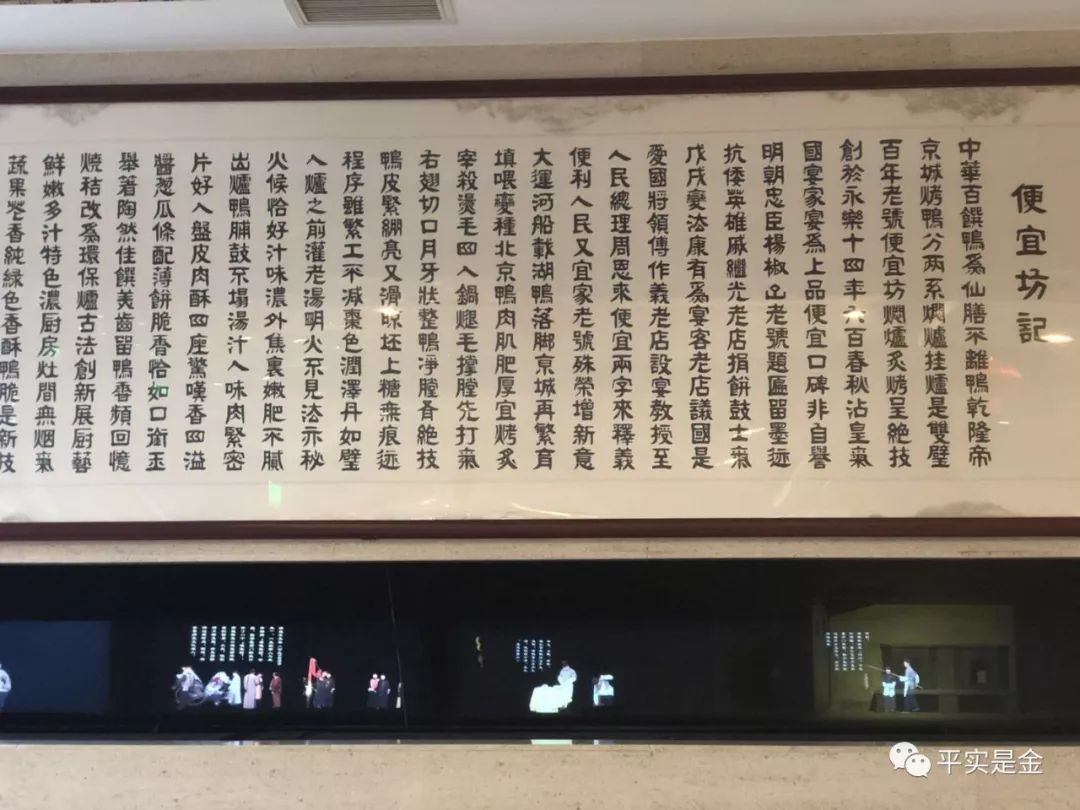 便宜坊記
中華百饌鴨爲仙膳不離鴨乾隆帝
京城烤鴨分两系燜爐挂爐是雙璧
百年老號便宜坊燜爐炙烤呈絶技
創於永樂十四年六百春秋沾皇氣
國宴家宴爲上品便宜口碑非自譽
明朝忠臣楊椒山老號題匾留墨迹
抗倭英雄戚繼光老店捐餅鼓士氣
戊戌變法康有爲宴客老店議國是
愛國將領傅作義老店設宴教授至
人民總理周恩來便宜兩字來釋義
便利人民又宜家老號殊榮增新意
大運河船載湖鴨落脚京城再繁育
填喂變種北京鴨肉肌肥厚宜烤炙
宰殺燙毛四入鍋煺毛撐膛先打氣
右翅切口月牙狀整鴨淨膛各絶技
鴨皮緊綳亮又滑晾坯上糖無痕迹
程序雖繁工不减棗色潤澤丹如璧
入爐之前灌老湯明火不見法亦秘
火候恰好汁味濃外焦裏嫩肥不膩
出爐鴨脯鼓不塌湯汁入味肉緊密
片好入盤皮肉酥四座驚嘆香四溢
醬葱瓜條配薄餅脆香恰如口銜玉
舉著陶然佳饌美齒留鴨香頻回憶
燒秸改爲環保爐古法創新展厨藝
鮮嫩多汁特色濃厨房灶間無烟氣
蔬果香純緑色香酥鴨脆是新技
平实是金